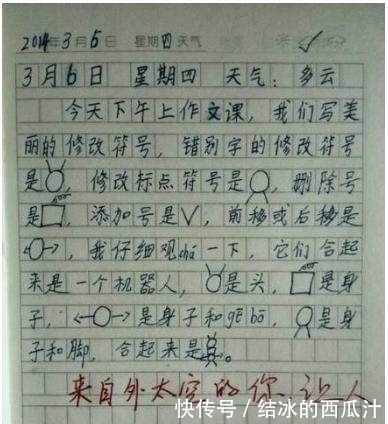 2014年3月6日 星期四 天气
3月6日 星期四 天气：多云
今天下午上作文课，我们写美
丽的修改符号，错别字的修改符号
是 ，修改标点符号是 ，删除号
是 ，添加号是√，前移或后移是
，我仔细观chá一下，它们合起
来是一个机器人， 是头， 是身
子， 是身子和gē bō， 是身
子和脚，合起来是 。
来自外太空的你
快传号/结冰的西瓜汁